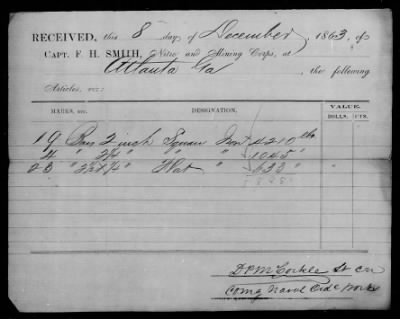 RECEIVED, this 8 day of December, 1863, of
CAPT. F. H. SMITH, Nitre and Mining Corps, at
Atlanta Ga, the following
Articles, viz:
MARKS, etc. DESIGNATION. VALUE.
DOLLS. CTS.
19 Bars 2 inch Square Iron 4210 lbs
4 " 2¼ " " " 1045 "
23 " Flat " 633 "
D P McCorkle Lt CN
Comg Naval Ord Works